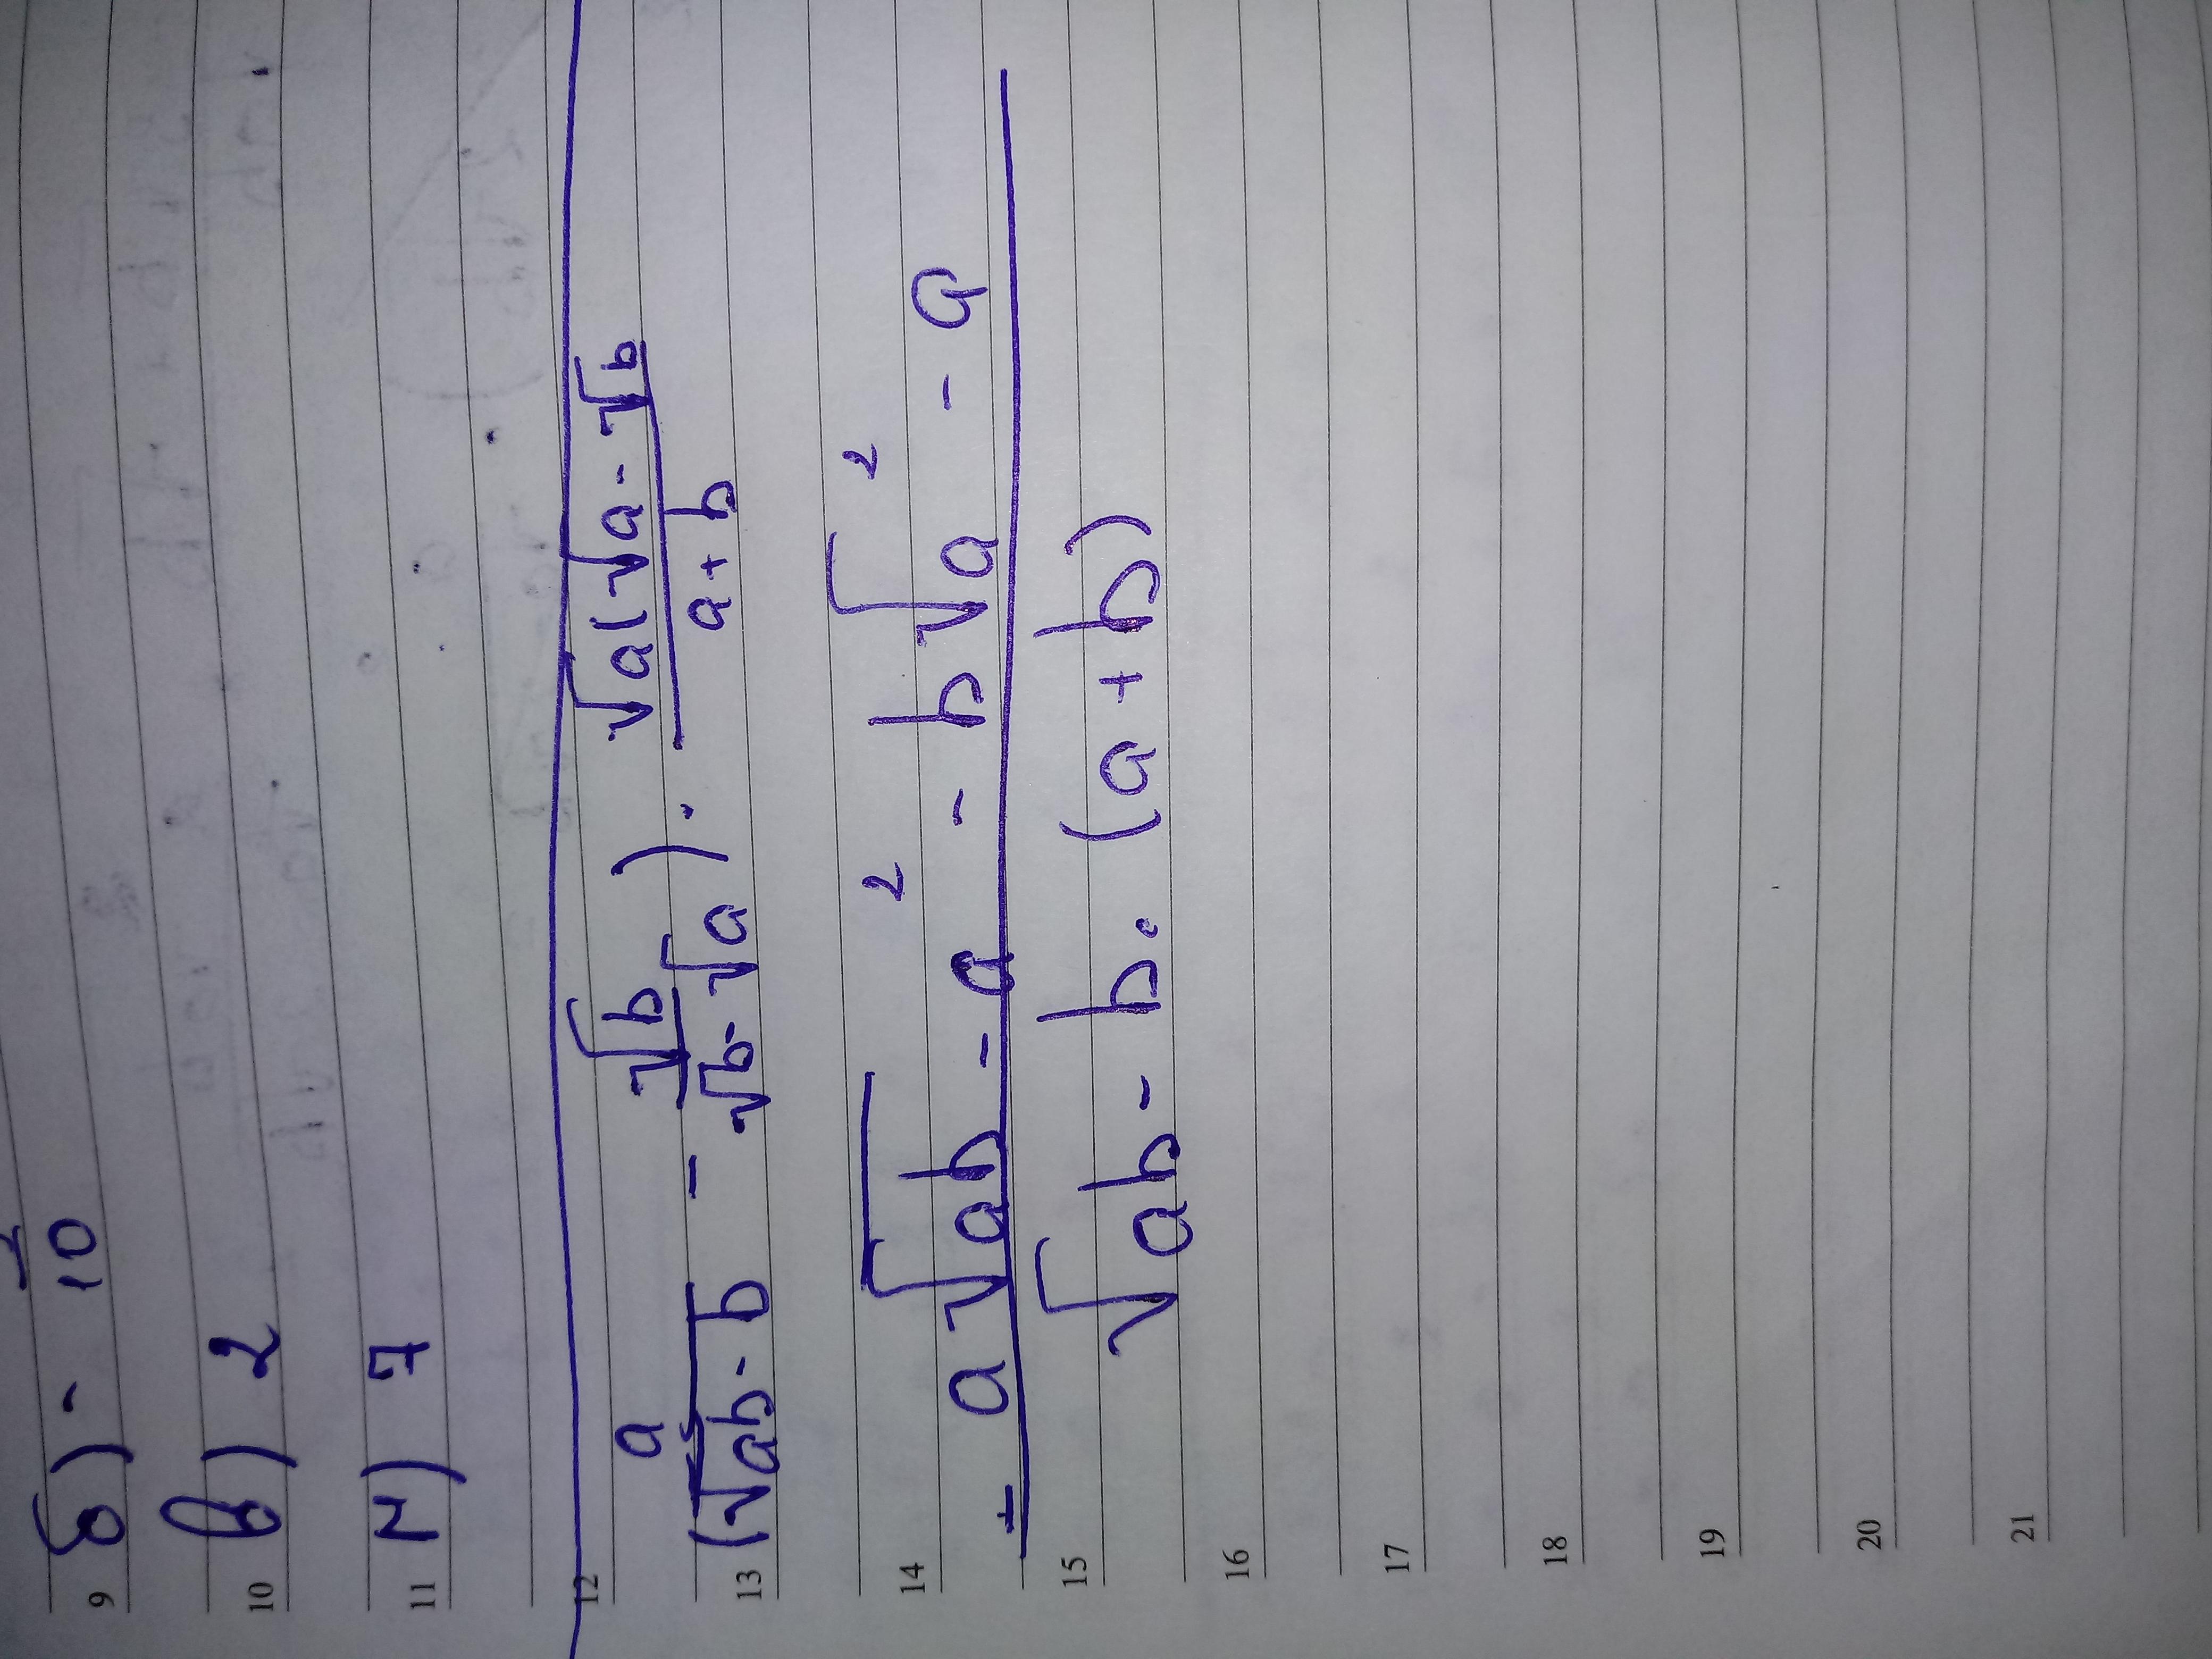 9 б) - 10
10 в) 2
11 г) 7
12
13 (a/(√ab - b) - √b/(√b - √a)) · √a(√a - √b/(a + b)
14 = a√ab - a² - b√a² - a
15 √ab - b · (a + b)
16
17
18
19
20
21